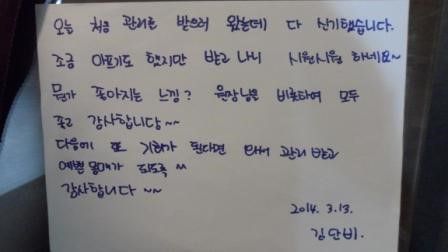 오늘 처음 관리를 받으러 왔는데 다 신기했습니다.
조금 아프기도 했지만 받고 나니 시원시원 하네요~
뭔가 좋아지는 느낌? 원장님을 비롯하여 모두
좋고 감사합니당~~
다음에 또 기회가 된다면 와서 관리 받고
예쁜 몸매가 되도록 ^^
감사합니다 ~~
2014. 3.13.
김단비.